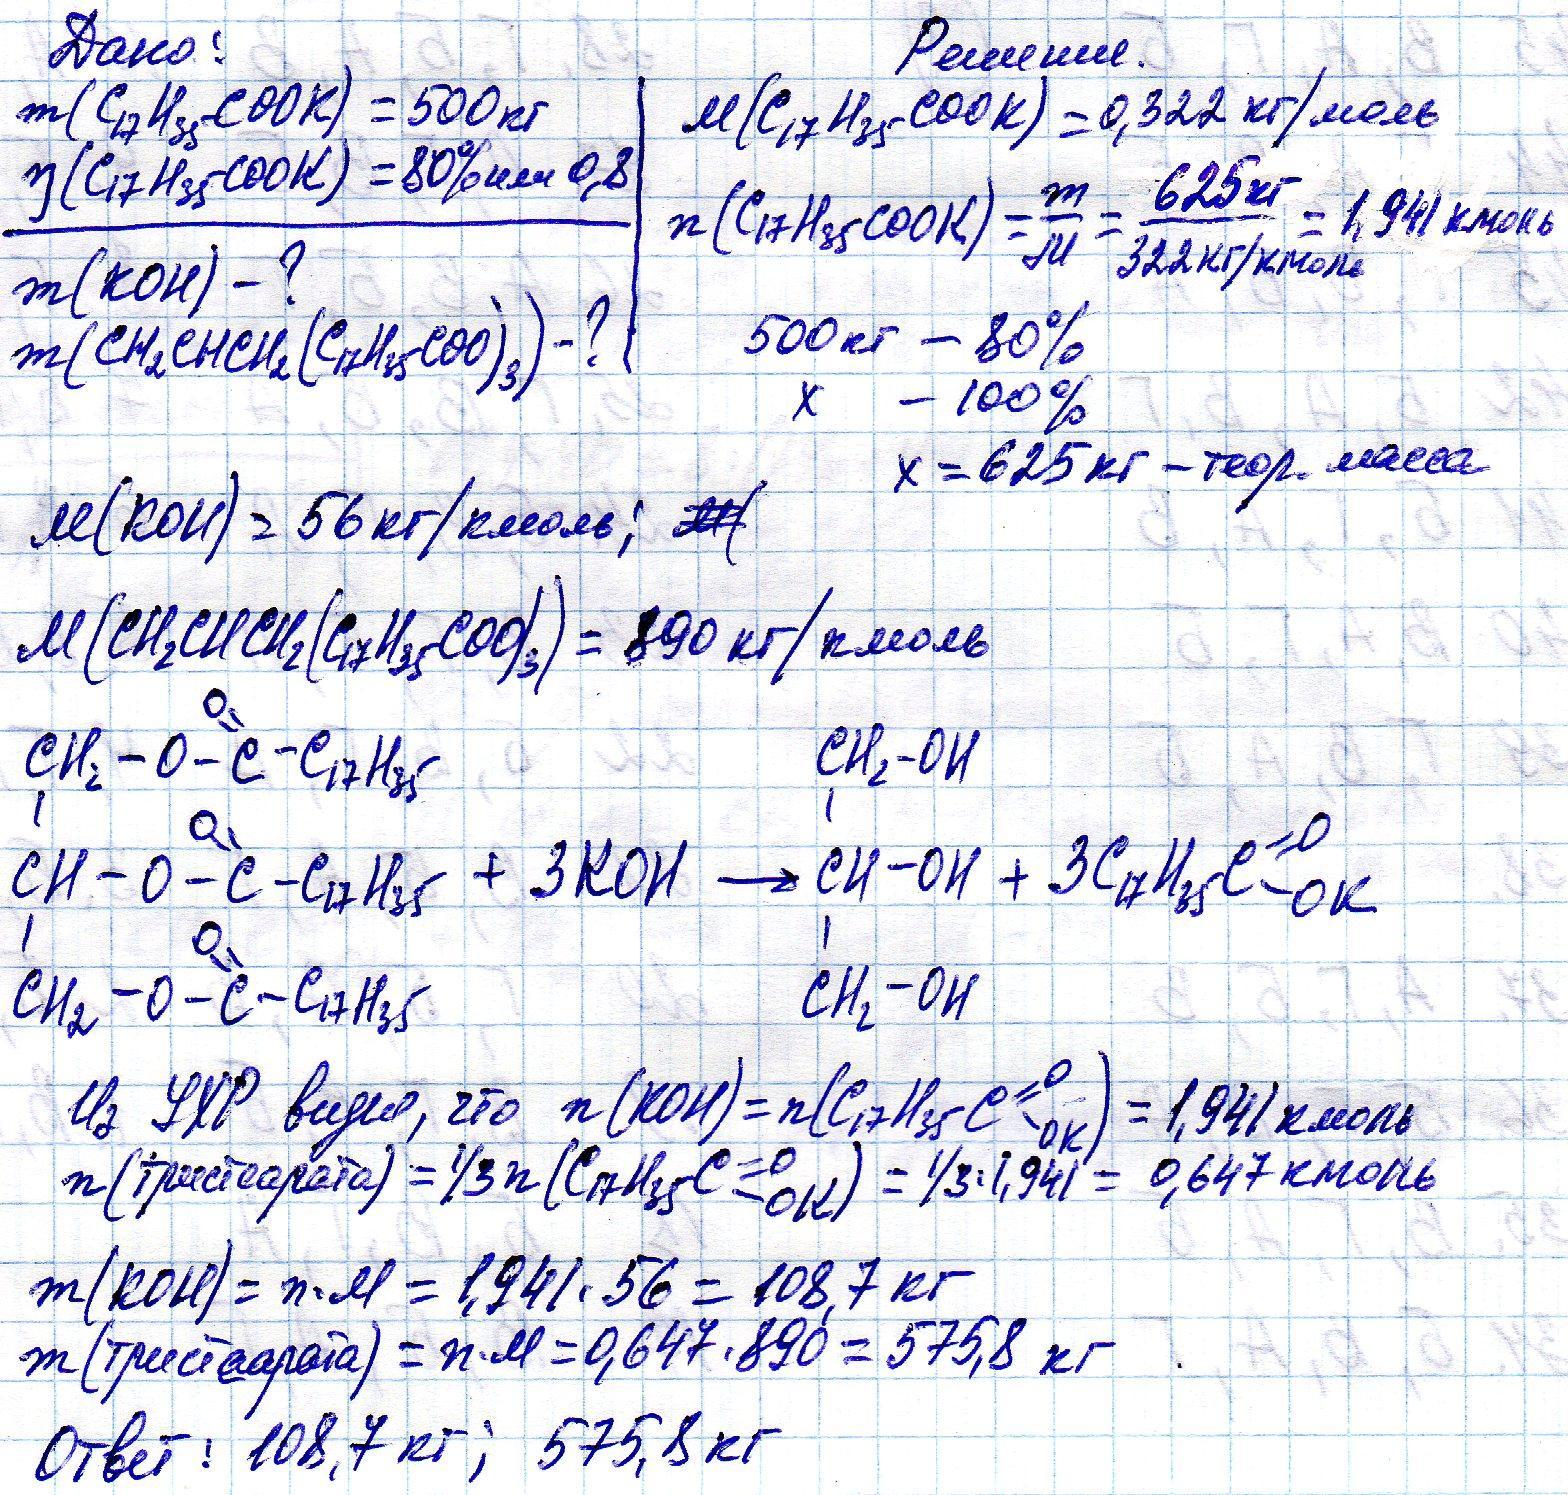 Дано:
m(C₁₇H₃₅COOK) = 500 кг
η(C₁₇H₃₅COOK) = 80% или 0,8
m(KOH) - ?
m(CH₂CHCH₂(C₁₇H₃₅COO)₃) - ?
Решение.
M(C₁₇H₃₅COOK) = 0,322 кг/моль
n(C₁₇H₃₅COOK) = m/M = 625 кг/322 кг/кмоль = 1,941 кмоль
500 кг – 80%
x – 100%
x = 625 кг – теор. масса
M(KOH) = 56 кг/кмоль;
M(CH₂CHCH₂(C₁₇H₃₅COO)₃) = 890 кг/кмоль
O O O
CH₂-O-C-C₁₇H₃₅ CH₂-OH
CH-O-C-C₁₇H₃₅ + 3KOH → CH-OH + 3C₁₇H₃₅C=O-OK
CH₂-O-C-C₁₇H₃₅ CH₂-OH
Из УХР видно, что n(KOH) = n(C₁₇H₃₅C=O-OK) = 1,941 кмоль
n(тристеарата) = 1/3 n(C₁₇H₃₅C=O-OK) = 1/3·1,941 = 0,647 кмоль
m(KOH) = n·M = 1,941·56 = 108,7 кг
m(тристеарата) = n·M = 0,647·890 = 575,8 кг
Ответ: 108,7 кг; 575,8 кг